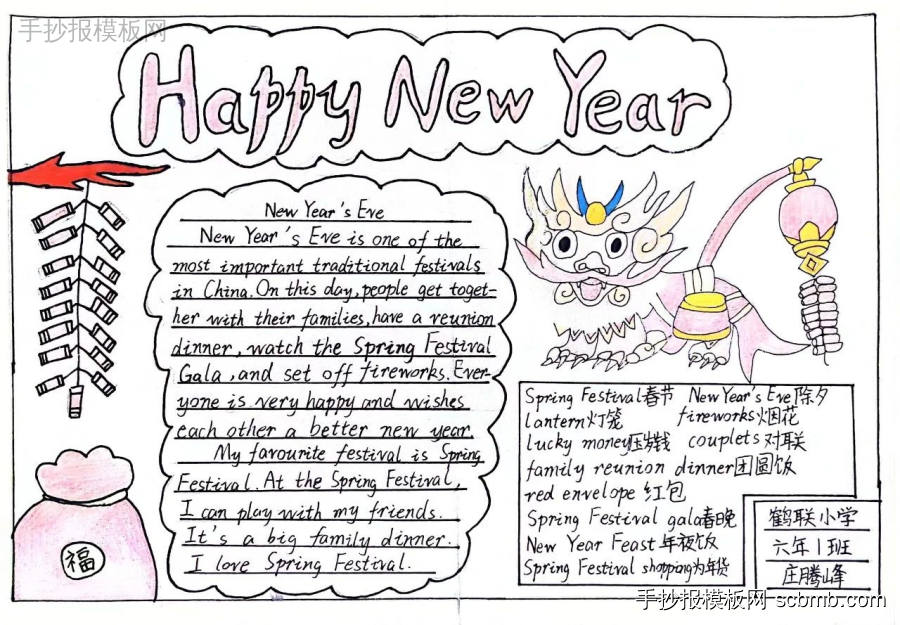 手抄报模板网
Happy New Year
New Year's Eve
New Year's Eve is one of the
most important traditional festivals
in China. On this day, people get toget-
her with their families, have a reunion
dinner, watch the Spring Festival
Gala, and set off fireworks. Ever-
yone is very happy and wishes
each other a better new year.
My favourite festival is Spring
Festival. At the Spring Festival,
I can play with my friends.
It's a big family dinner.
I love Spring Festival.
福
Spring Festival春节 New Year's Eve除夕
lantern灯笼 fireworks烟花
lucky money压岁钱 couplets对联
family reunion dinner团圆饭
red envelope 红包
Spring Festival gala春晚
New Year Feast年夜饭
Spring Festival shopping办年货
鹤联小学
六年1班
庄腾峰
手抄报模板网 scbmb.com